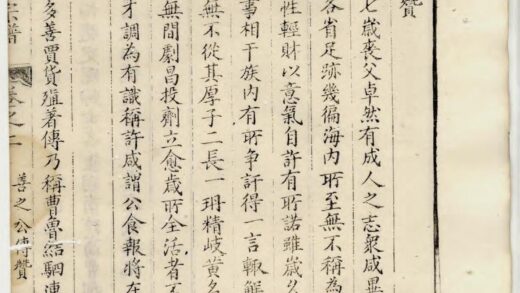 贊
七歲喪父卓然有成人之志衆咸異
各省足跡幾徧海内所至無不稱為
性輕財以意氣自許有所諾雖歲久
事相干族内有所争訐得一言輒解
無不從其厚子二長一琄精岐黄名
無間劇昌投劑立愈歲所全活者不
才調為有識稱許咸謂公食報將在
多善賈貨殖著傳乃稱曹魯結駟連
宗譜
卷之一
善之公傳贊